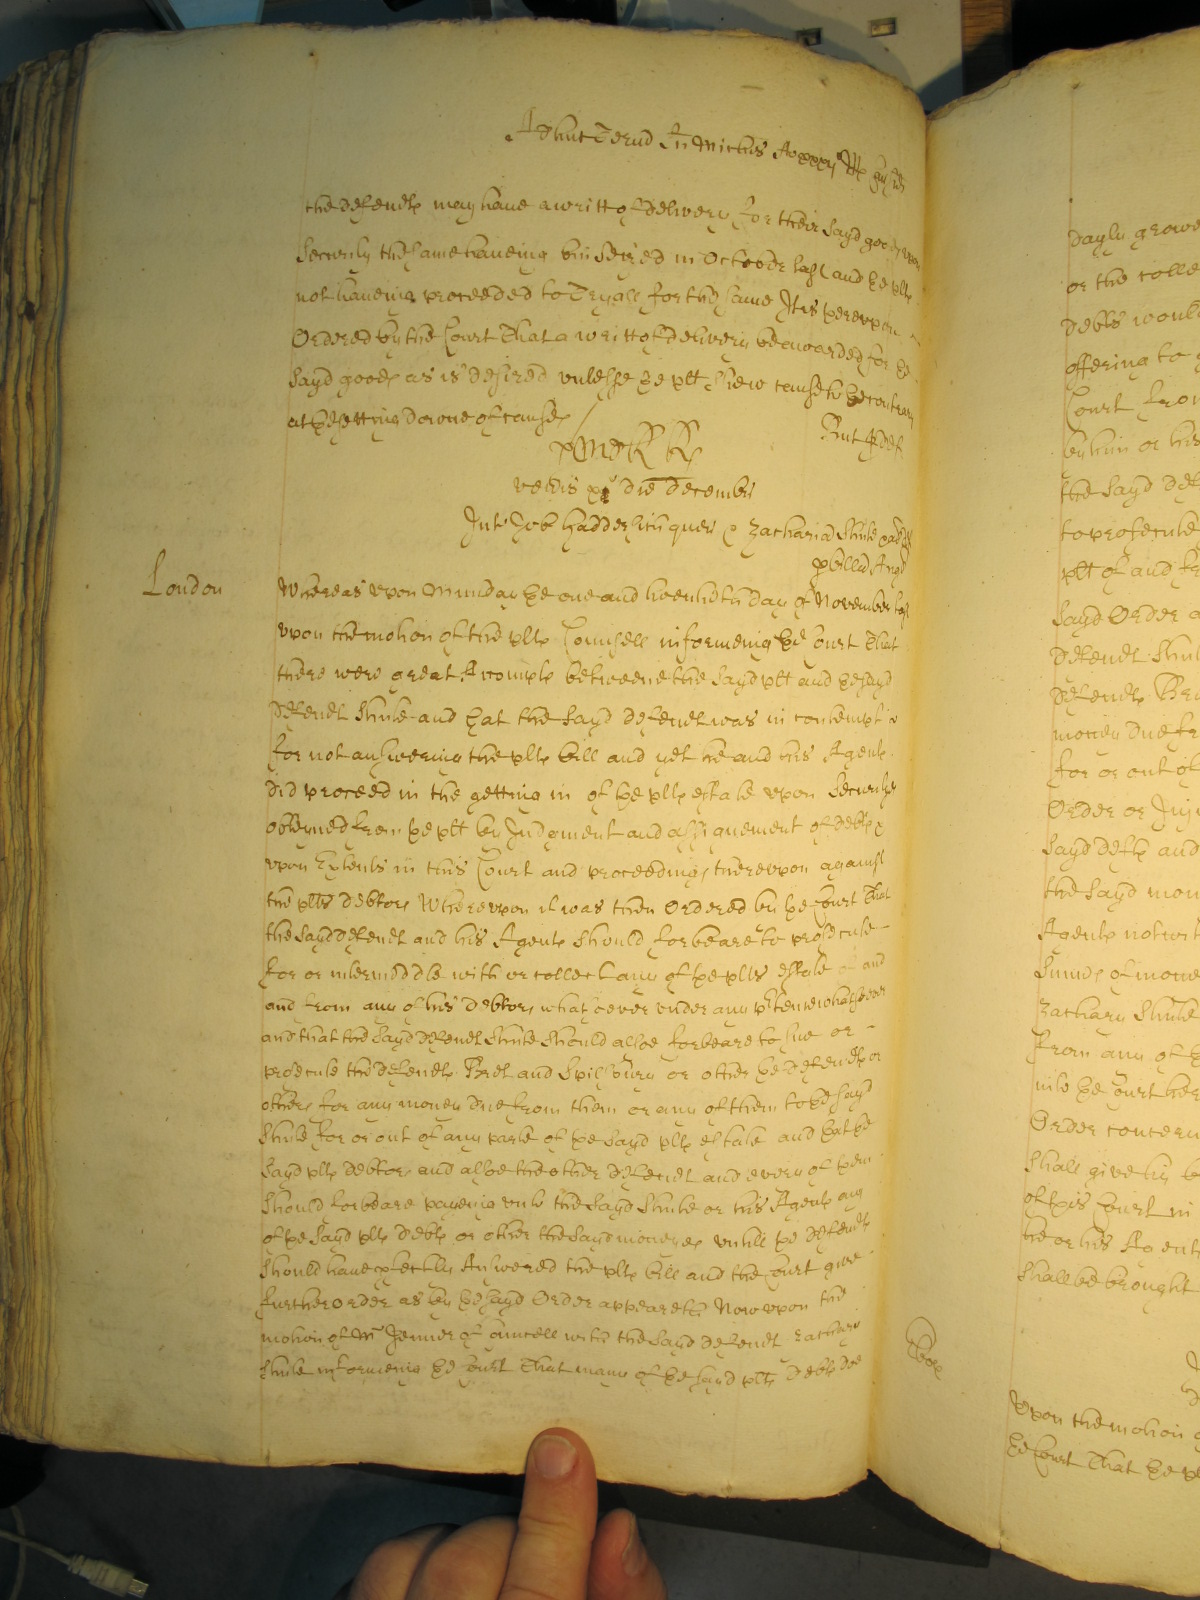 Adhuc Term Sci Michis Ao xxxij
the Defendts may have a writt of Delivery for their sayd goods upon
Security the same haveing bin Seized in October last and ye plts
not haveing proceeded to Tryall for the same It is herevpon
Ordered by the Court That a writt of delivery be awarded for ye
sayd goods as is desired vnlesse ye plt shew cause to ye contrary
at ye setting downe of causes
London
Int Job Hadderlich quer & Zacharia Shute
p billa Angl
Whereas vpon Munday ye one and twentieth day of November last
vpon the motion of the plts Counsell informeing ye Court That
there were great Accompts betweene the sayd plt and ye sayd
Defendt Shute and that the sayd defendt was in contempt
for not answering the plts bill and yet he and his Agents
did proceed in the getting in of ye plts estate vpon Securitys
obteyned from ye plt by Judgment and assignement of debts &
vpon Extents in this Court and proceedings therevpon against
the plts debtors Wherevpon it was then Ordered by ye Court That
the sayd Defendt and his Agents should forbeare to prosecute
for or intermeddle with or collect any of ye plts estate and
and from any of his Debtors whatsoever vnder any ptence whatsoever
and that the sayd Defendt Shute should alsoe forbeare to sue or
prosecute the Defendts Bret and Spilsbury or other ye Defendts or
others for any money due from them or any of them to ye sayd
Shute for or out of any parte of ye sayd plts estate and that ye
sayd plts debtors and alsoe the other Defendt and every of them
should forbeare payeing vnto the sayd Shute or his Agents any
of ye sayd plts debts or other the sayd moneyes vntill ye defendts
should have pfectly Answered the plts bill and the Court give
further order as by ye sayd Order appeareth Now vpon the
motion of Mr Jenner of Councell with the sayd defendt Zachary
Shute informeing ye Court That many of ye sayd plts Debts doe
dayly grow
or the colle
debts would
offering to
Court from
by him or his
the sayd def
to prosecute
plt of and fr
sayd Order
defendt Shut
defendts Bre
money due fr
for or out of
Order or Inj
sayd defts and
the sayd mon
Agents notwit
Summs of mone
Zachary Shute
from any of
into ye Court her
Order concern
shall give
of this Court in
he or his Agent
shall be brought
Vpon the motion
ye Court That ye pl